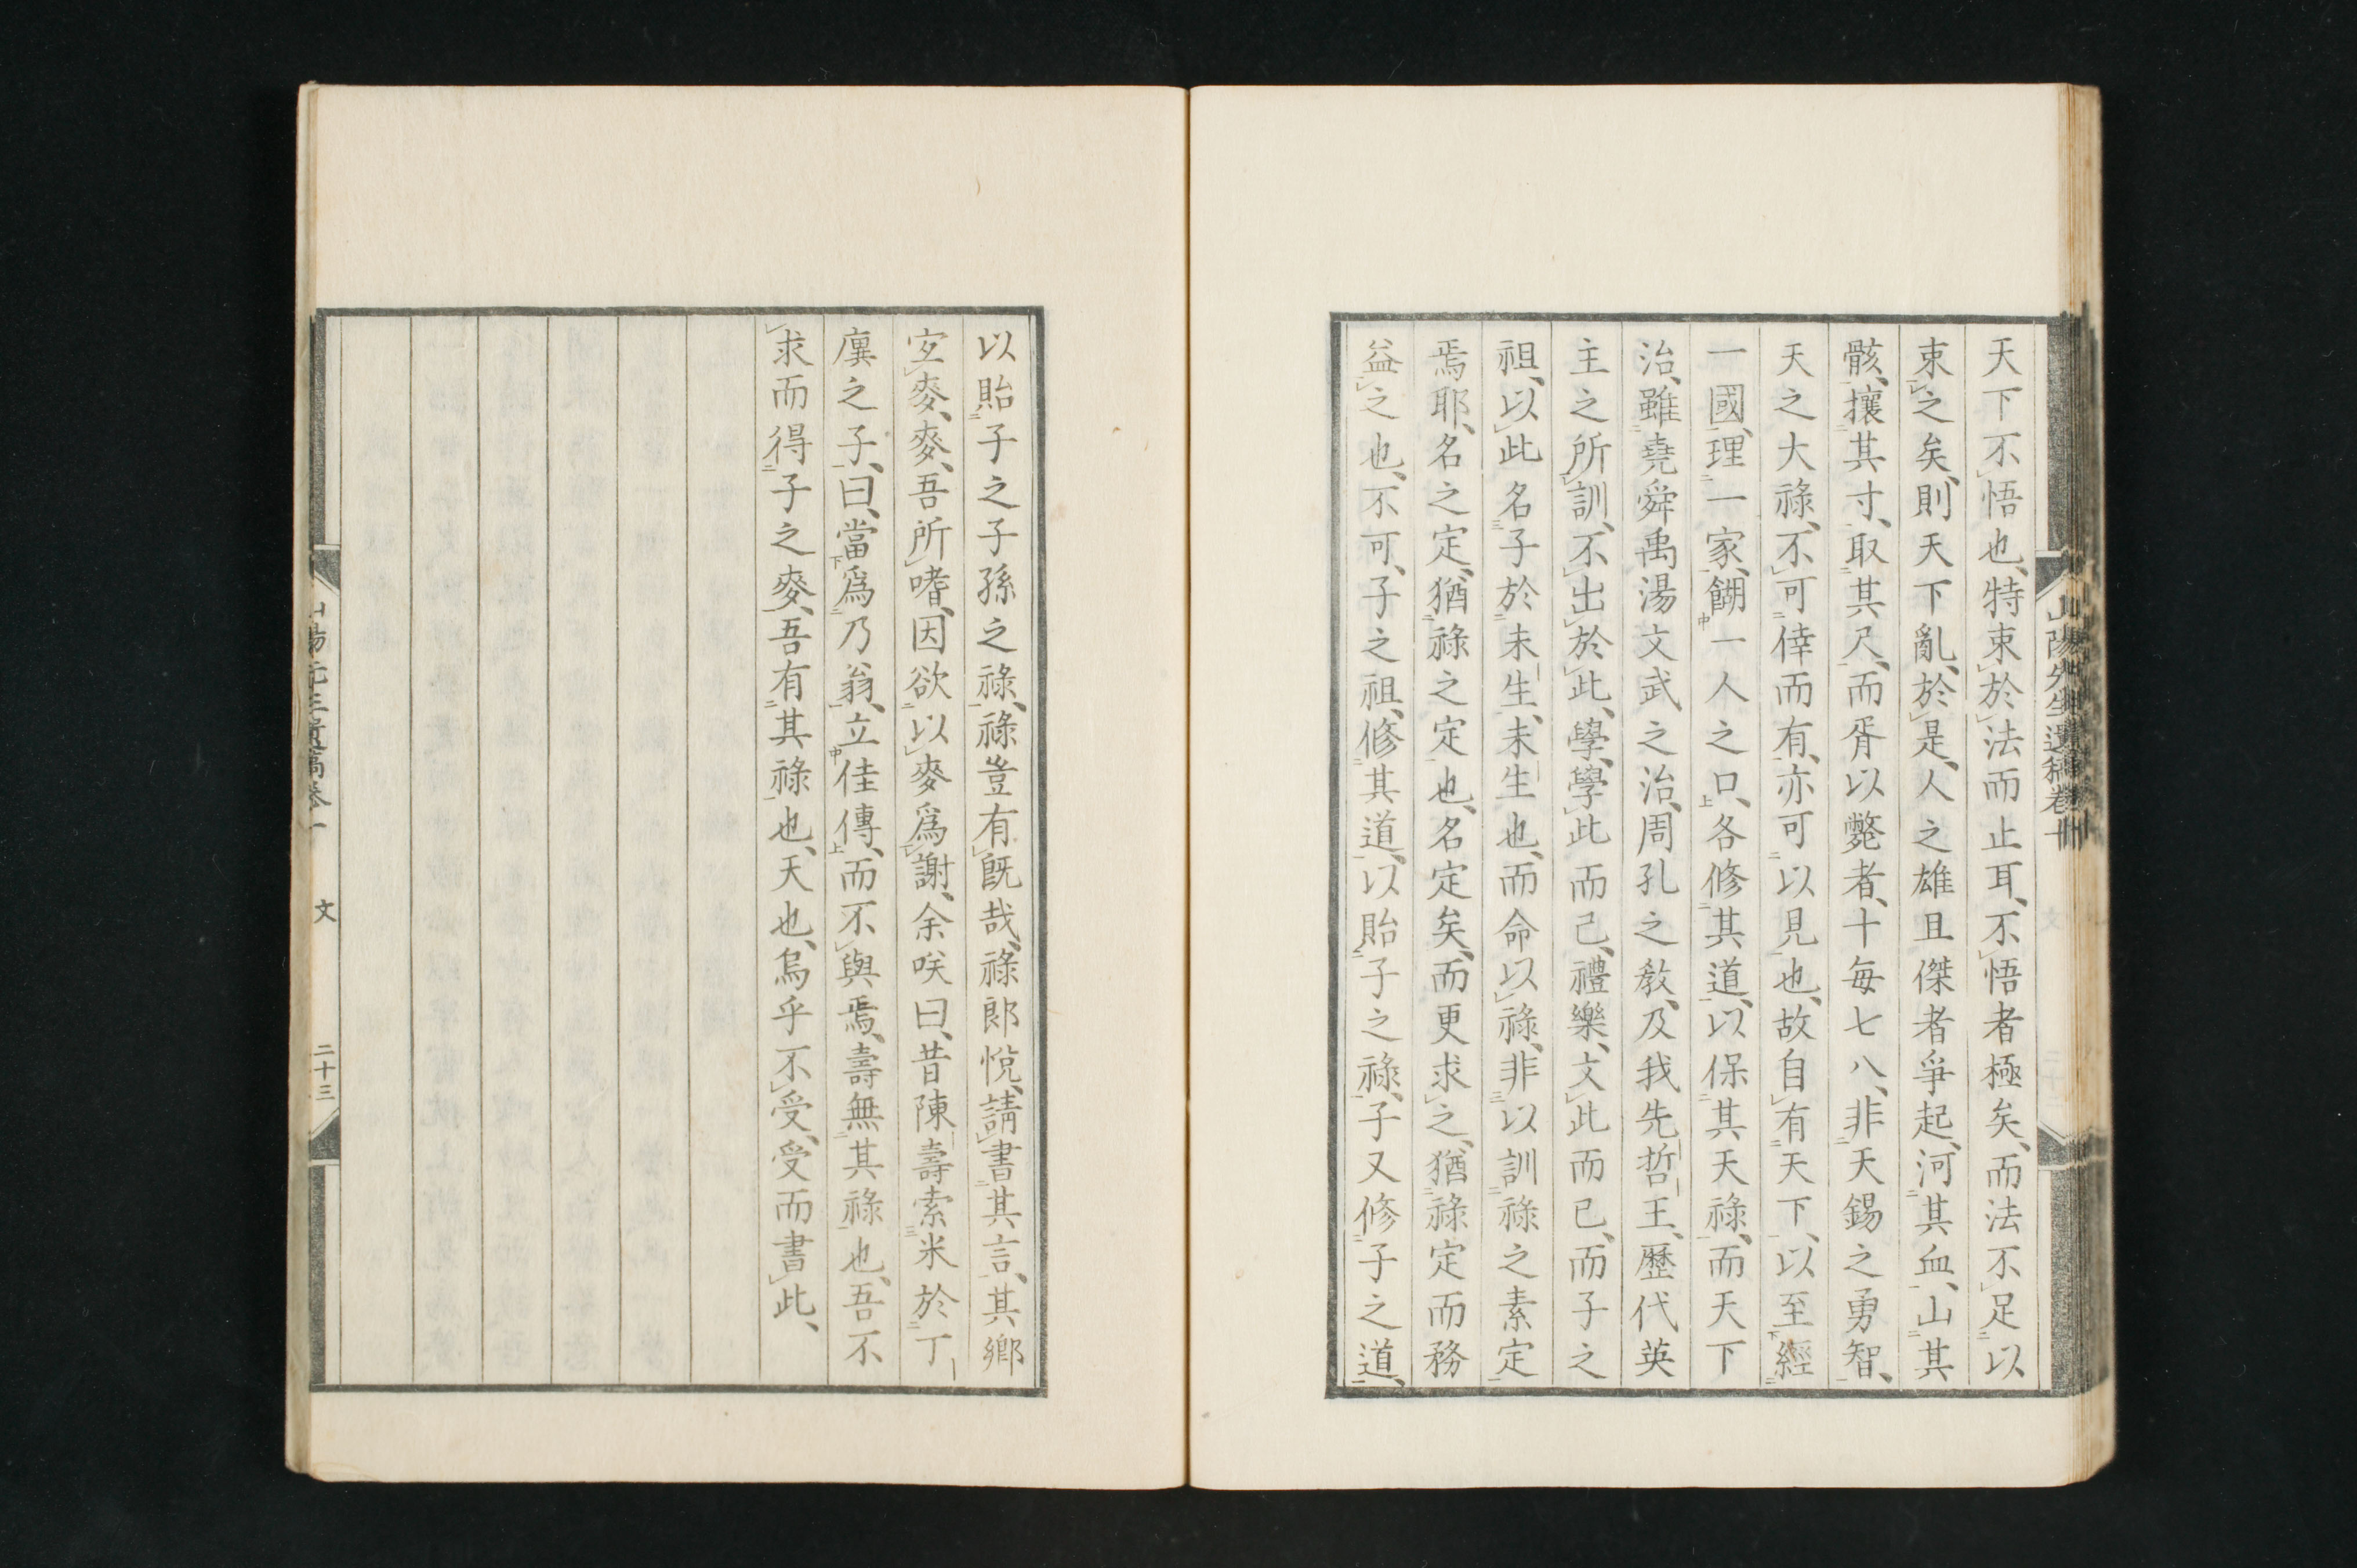 天下不悟也、特束於法而止耳、不悟者極矣、而法不足以
束之矣、則天下亂、於是、人之雄且傑者爭起、河其血、山其
骸、攘其寸、取其尺、而胥以斃者、十每七八、非天錫之勇智、
天之大祿、不可倖而有、亦可以見也、故自有天下、以至經
一國、理一家、餬一人之口、各修其道、以保其天祿、而天下
治、雖堯舜禹湯文武之治、周孔之教、及我先哲王、歷代英
主之所訓、不出於此、學、學此而已、禮樂、文此而已、而子之
祖、以此名子於未生、未生也、而命以祿、非以訓祿之素定
焉耶、名之定、猶祿之定也、名定矣、而更求之、猶祿定而務
益之也、不可、子之祖、修其道、以貽子之祿、子又修子之道、
以貽子之子孫之祿、祿豈有既哉、祿郎悅、請書其言、其鄉
宜麥、麥、吾所嗜、因欲以麥爲謝、余咲曰、昔陳壽索米於丁
廙之子、曰、當爲乃翁、立佳傳、而不與焉、壽無其祿也、吾不
求而得子之麥、吾有其祿也、天也、烏乎不受、受而書此、
文
二十三